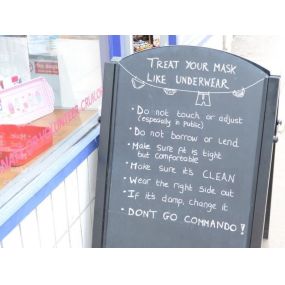 TREAT YOUR MASK
LIKE UNDERWEAR
• Do not touch or adjust
(especially in public)
• Do not borrow or lend
• Make sure fit is tight
but comfortable
• Make sure it's CLEAN
• Wear the right side out
• If it's damp, change it
• DON'T GO COMMANDO!